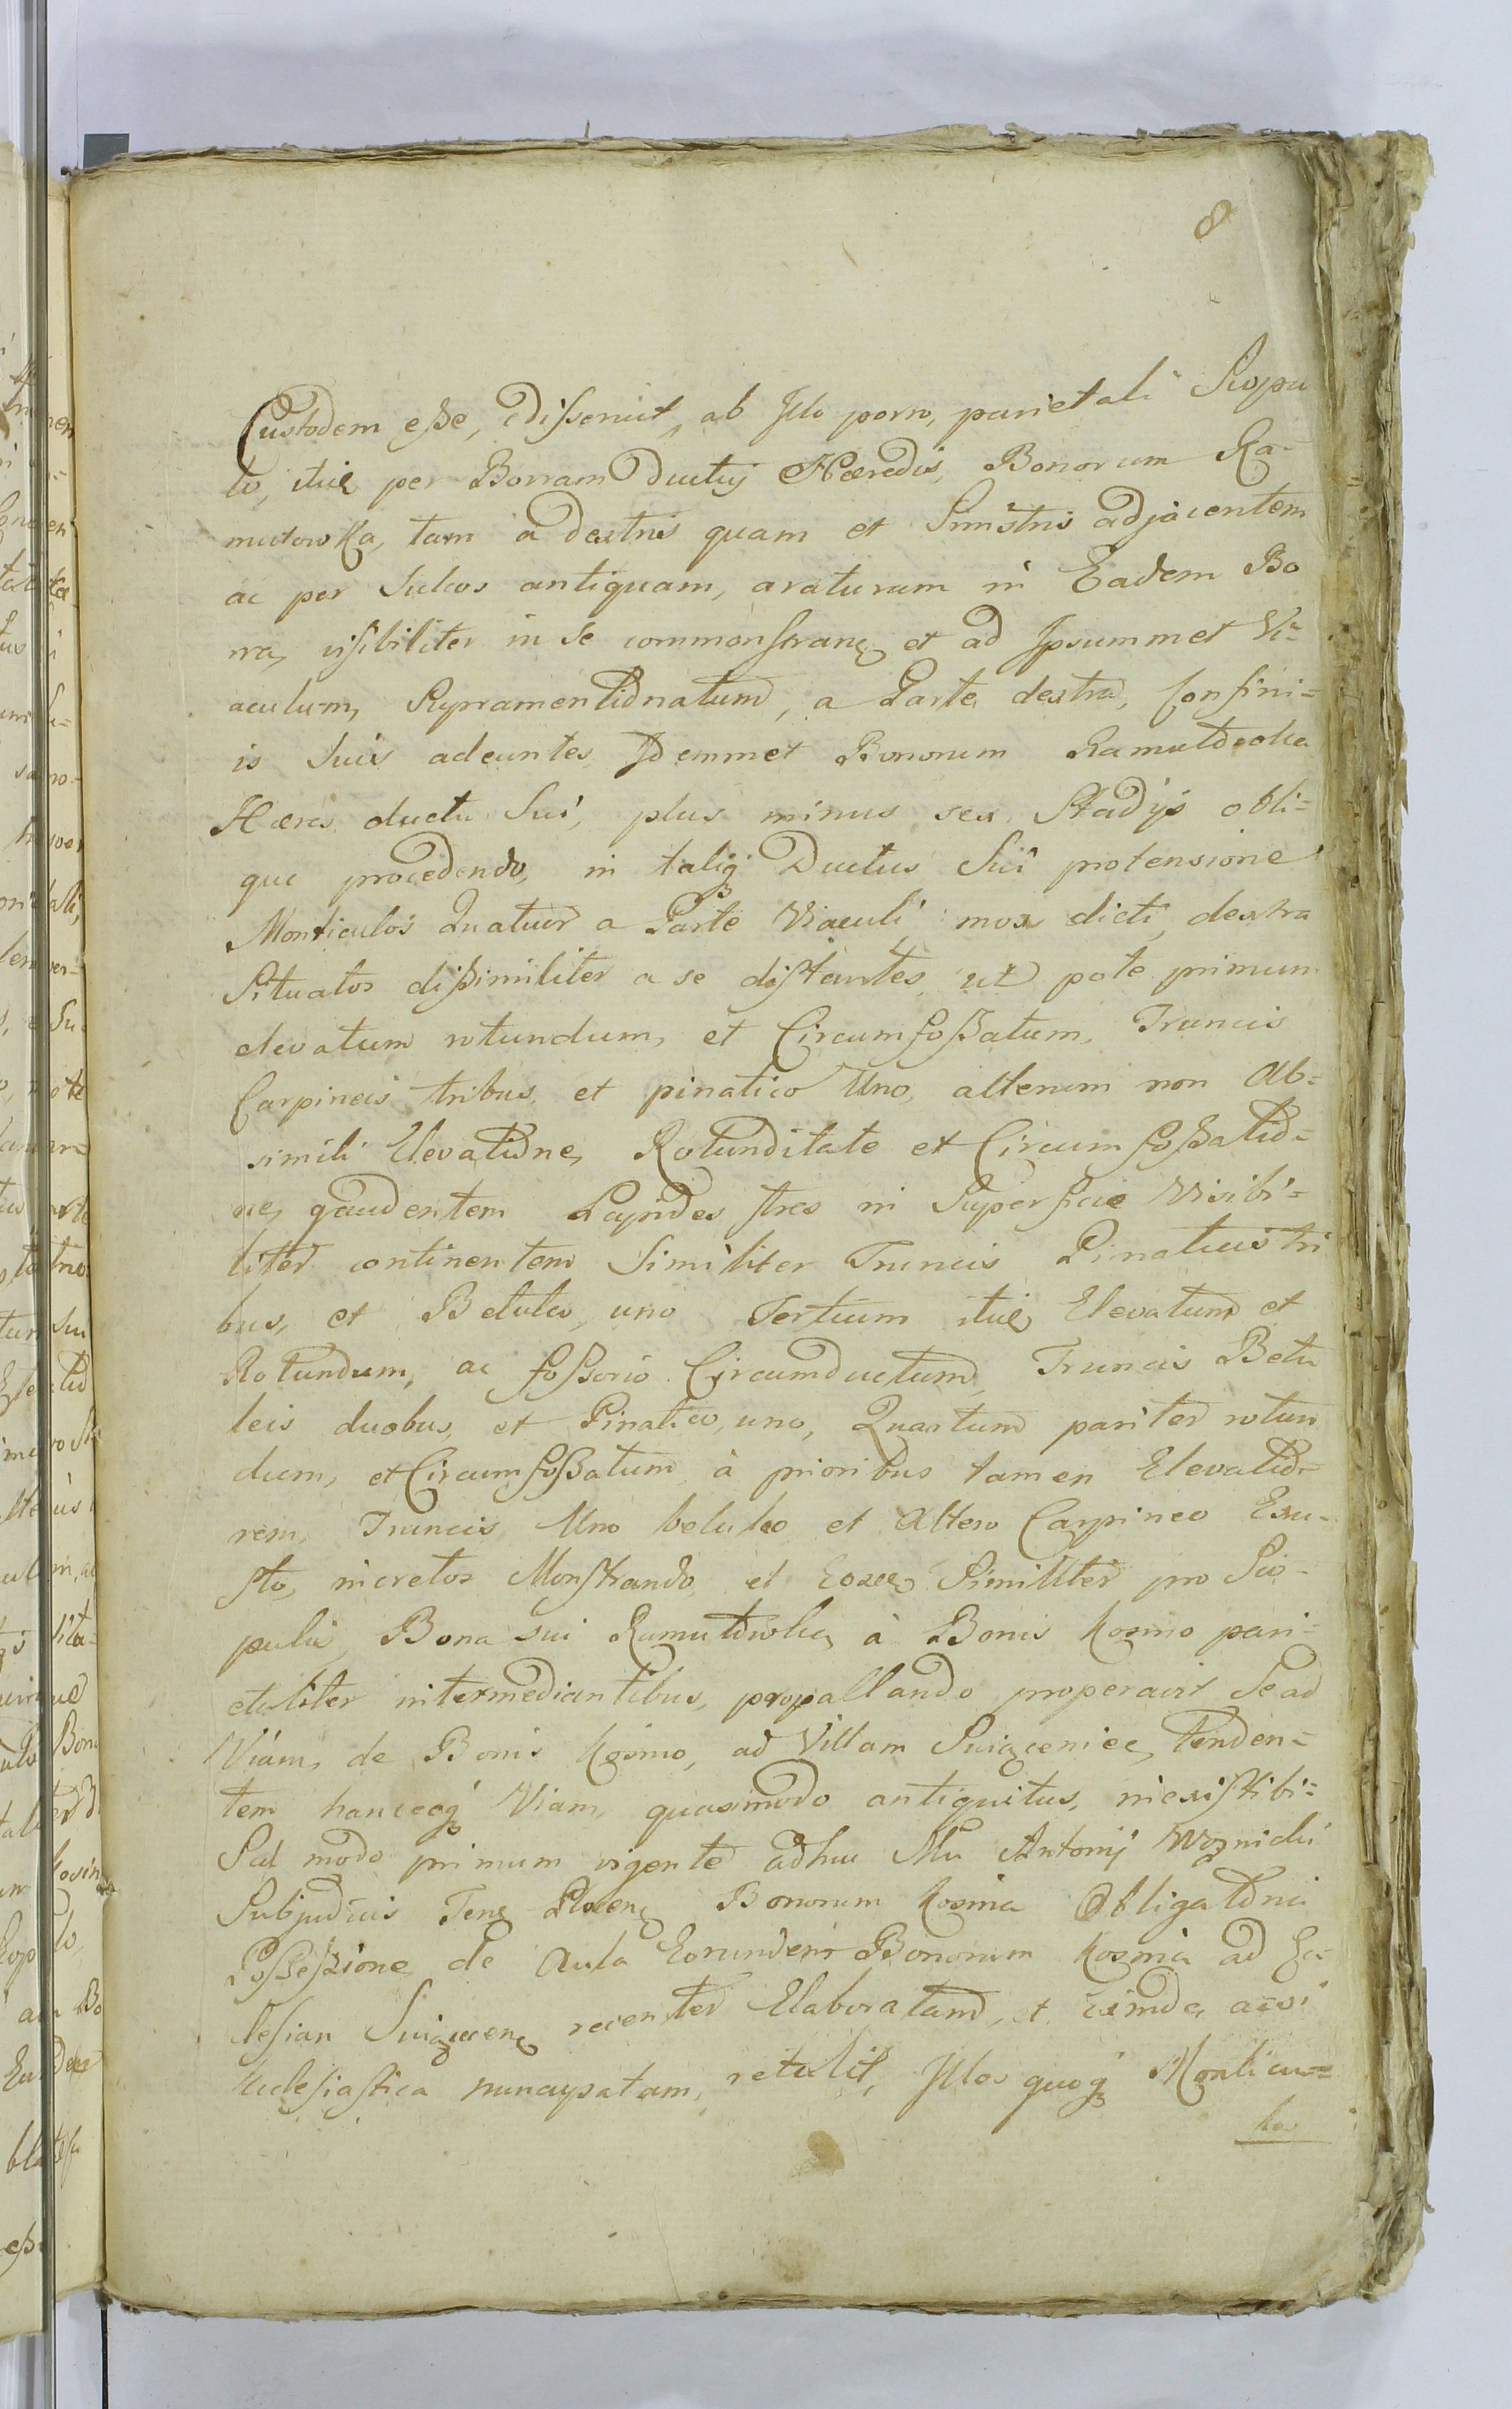 8
Custodem esse, disseruit, ab Illo porro, parietali Scopu
lo, itid per Borram Ductus Hæredis, Bonorum Ra-
mutowka, tam a dextris quam et Sinistris adjacentem
ac per Sulcos antiquam, araturam in Eadem Bo
rra, visibiliter in se commonstran et ad Ipsummet Vi=
aculum, a Parte dextra, Confini=
is suis adeuntes Idemmet Bonorum Ramultowka
Hæres ductu Sui, plus minus sex Stadijs obli=
que procedendo, in talig Ductus Sui protensione
Monticulos Quatuor a Parte Viaculi mox dicti, dextra
Situatos dissimiliter a se distantes, ut pote primum
elevatum rotundum, et Circumfossatum, Truncis
Carpineis tribus, et pinatico Uno, alterum non Ab=
simili Elevatione, Rotunditate et Circumfossatio=
ne, gaudentem Lapides tres in Superficie Visibi=
liter continentem Similiter Truncis Pinaticis tri
bus, et Betuleo, uno Tertium itid Elevatum et
Rotundum, ac fossorio Circumductum, Truncis Betu
leis duobus, et Pinatico, uno, Quartum pariter rotun
dum, et Circumfossatum, à prioribus tamen Elevatio=
rem, Truncis, Uno betuleo et Altero Carpineo Exu-
sto, incretos Monstrando, et Eosee Similiter pro Sco-
pulis, Bona sui Ramutowka, à Bonis Kosmo pari=
etaliter intermediantibus, propallando properavit Se ad
Viam, de Bonis Kosmo, ad Villam Swięcenice, tenden=
tem hancceq Viam, quasimodo antiquitus, inexistibi=
Sed modo primum vigente adhuc Mu Antonij Woznicki
Subjudicis Terr Plocen Bonorum Kosmia Obligatoria
Possessione de Aula Eorundem Bonorum Kosmia ad Ec-
clesian Swięcen recenter Elaboratam, et eimde, acsi
Ecclesiastica nuncupatam, retulit, Illos quoq Monticu=
los